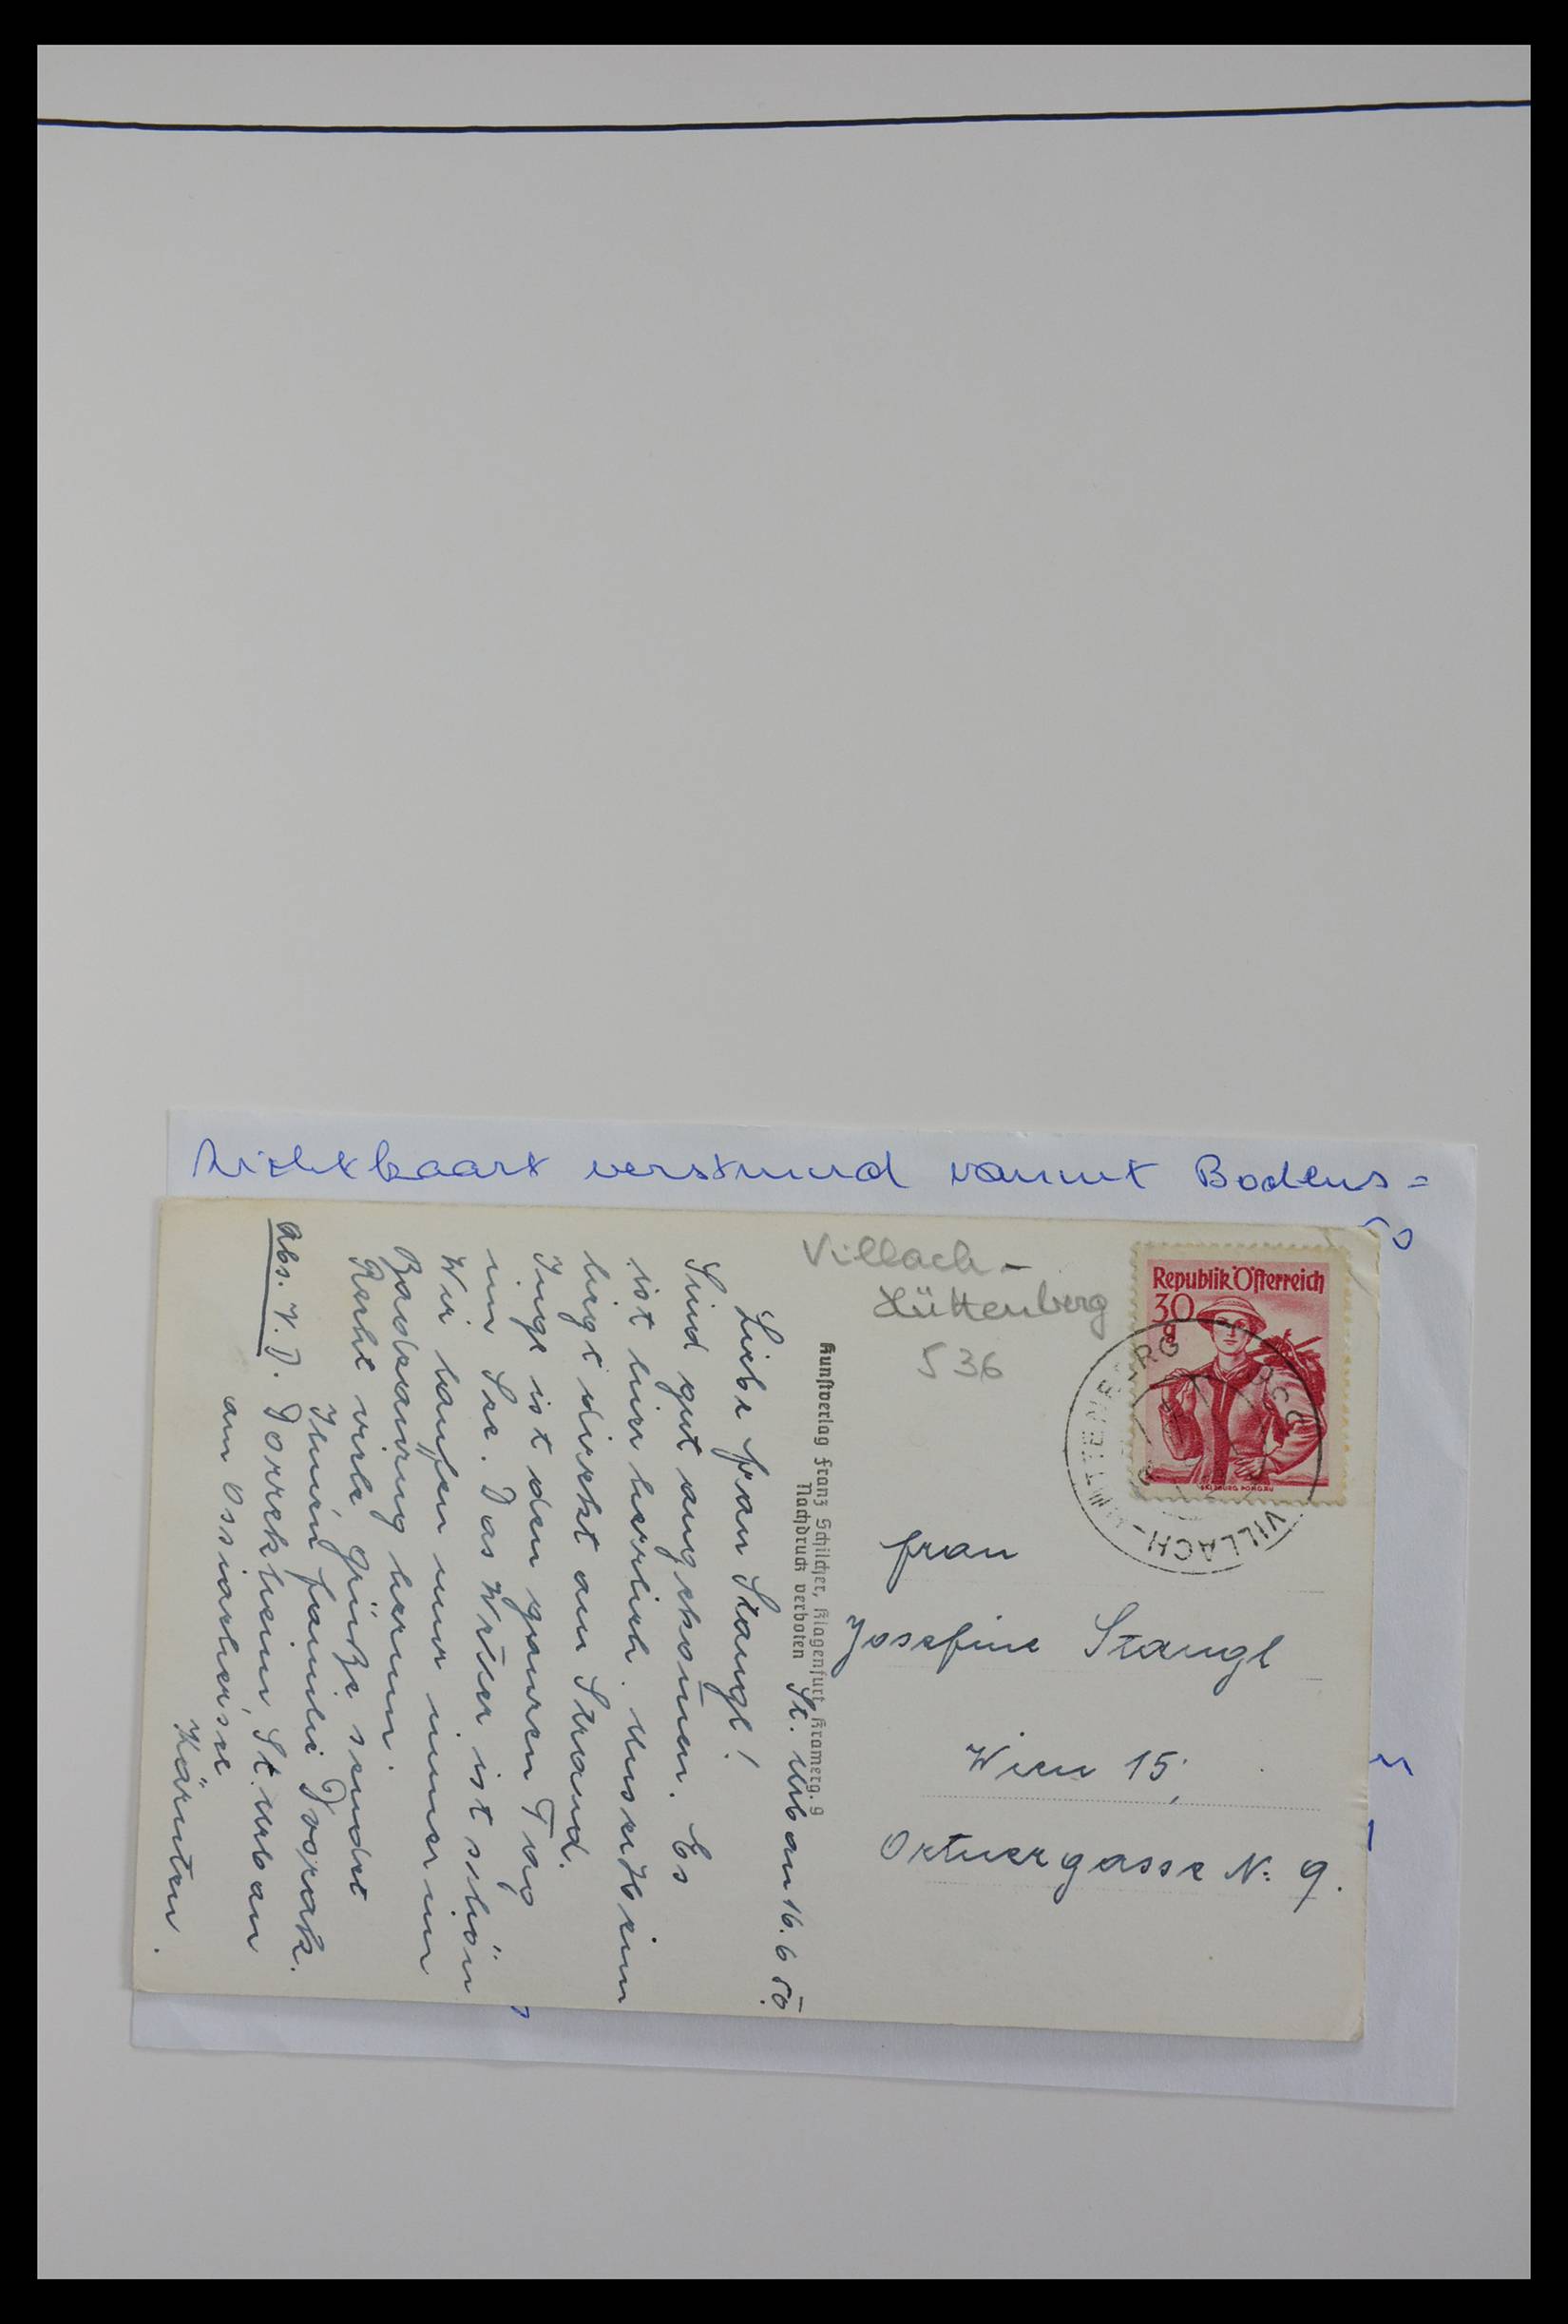 Zichtkaart verstuurd vanuit Bodens=
50
Villach-
Hüttenberg
536
Republik Österreich
30 g
SALZBURG PONGAU
VILLACH-HÜTTENBERG
Kunstverlag Franz Schilcher, Klagenfurt, Kramerg. 9
Nachdruck verboten
St. Urban 16.6 50.
Liebe Frau Stangl!
Sind gut angekom̄en. Es
ist hier herrlich. Unser Heim
liegt direkt am Strand.
Inge ist den ganzen Tag
im See. Das Wetter ist schön
Wir laufen nur immer im
Badeanzug herum.
Recht viele Grüße sendet
Ihnen Familie Dvorak.
Abs. V. D. Dorrekheim St. Urban
am Ossiachersee
Kärnten.
Frau
Josefine Stangl
Wien 15,
Ortnergasse N: 9.